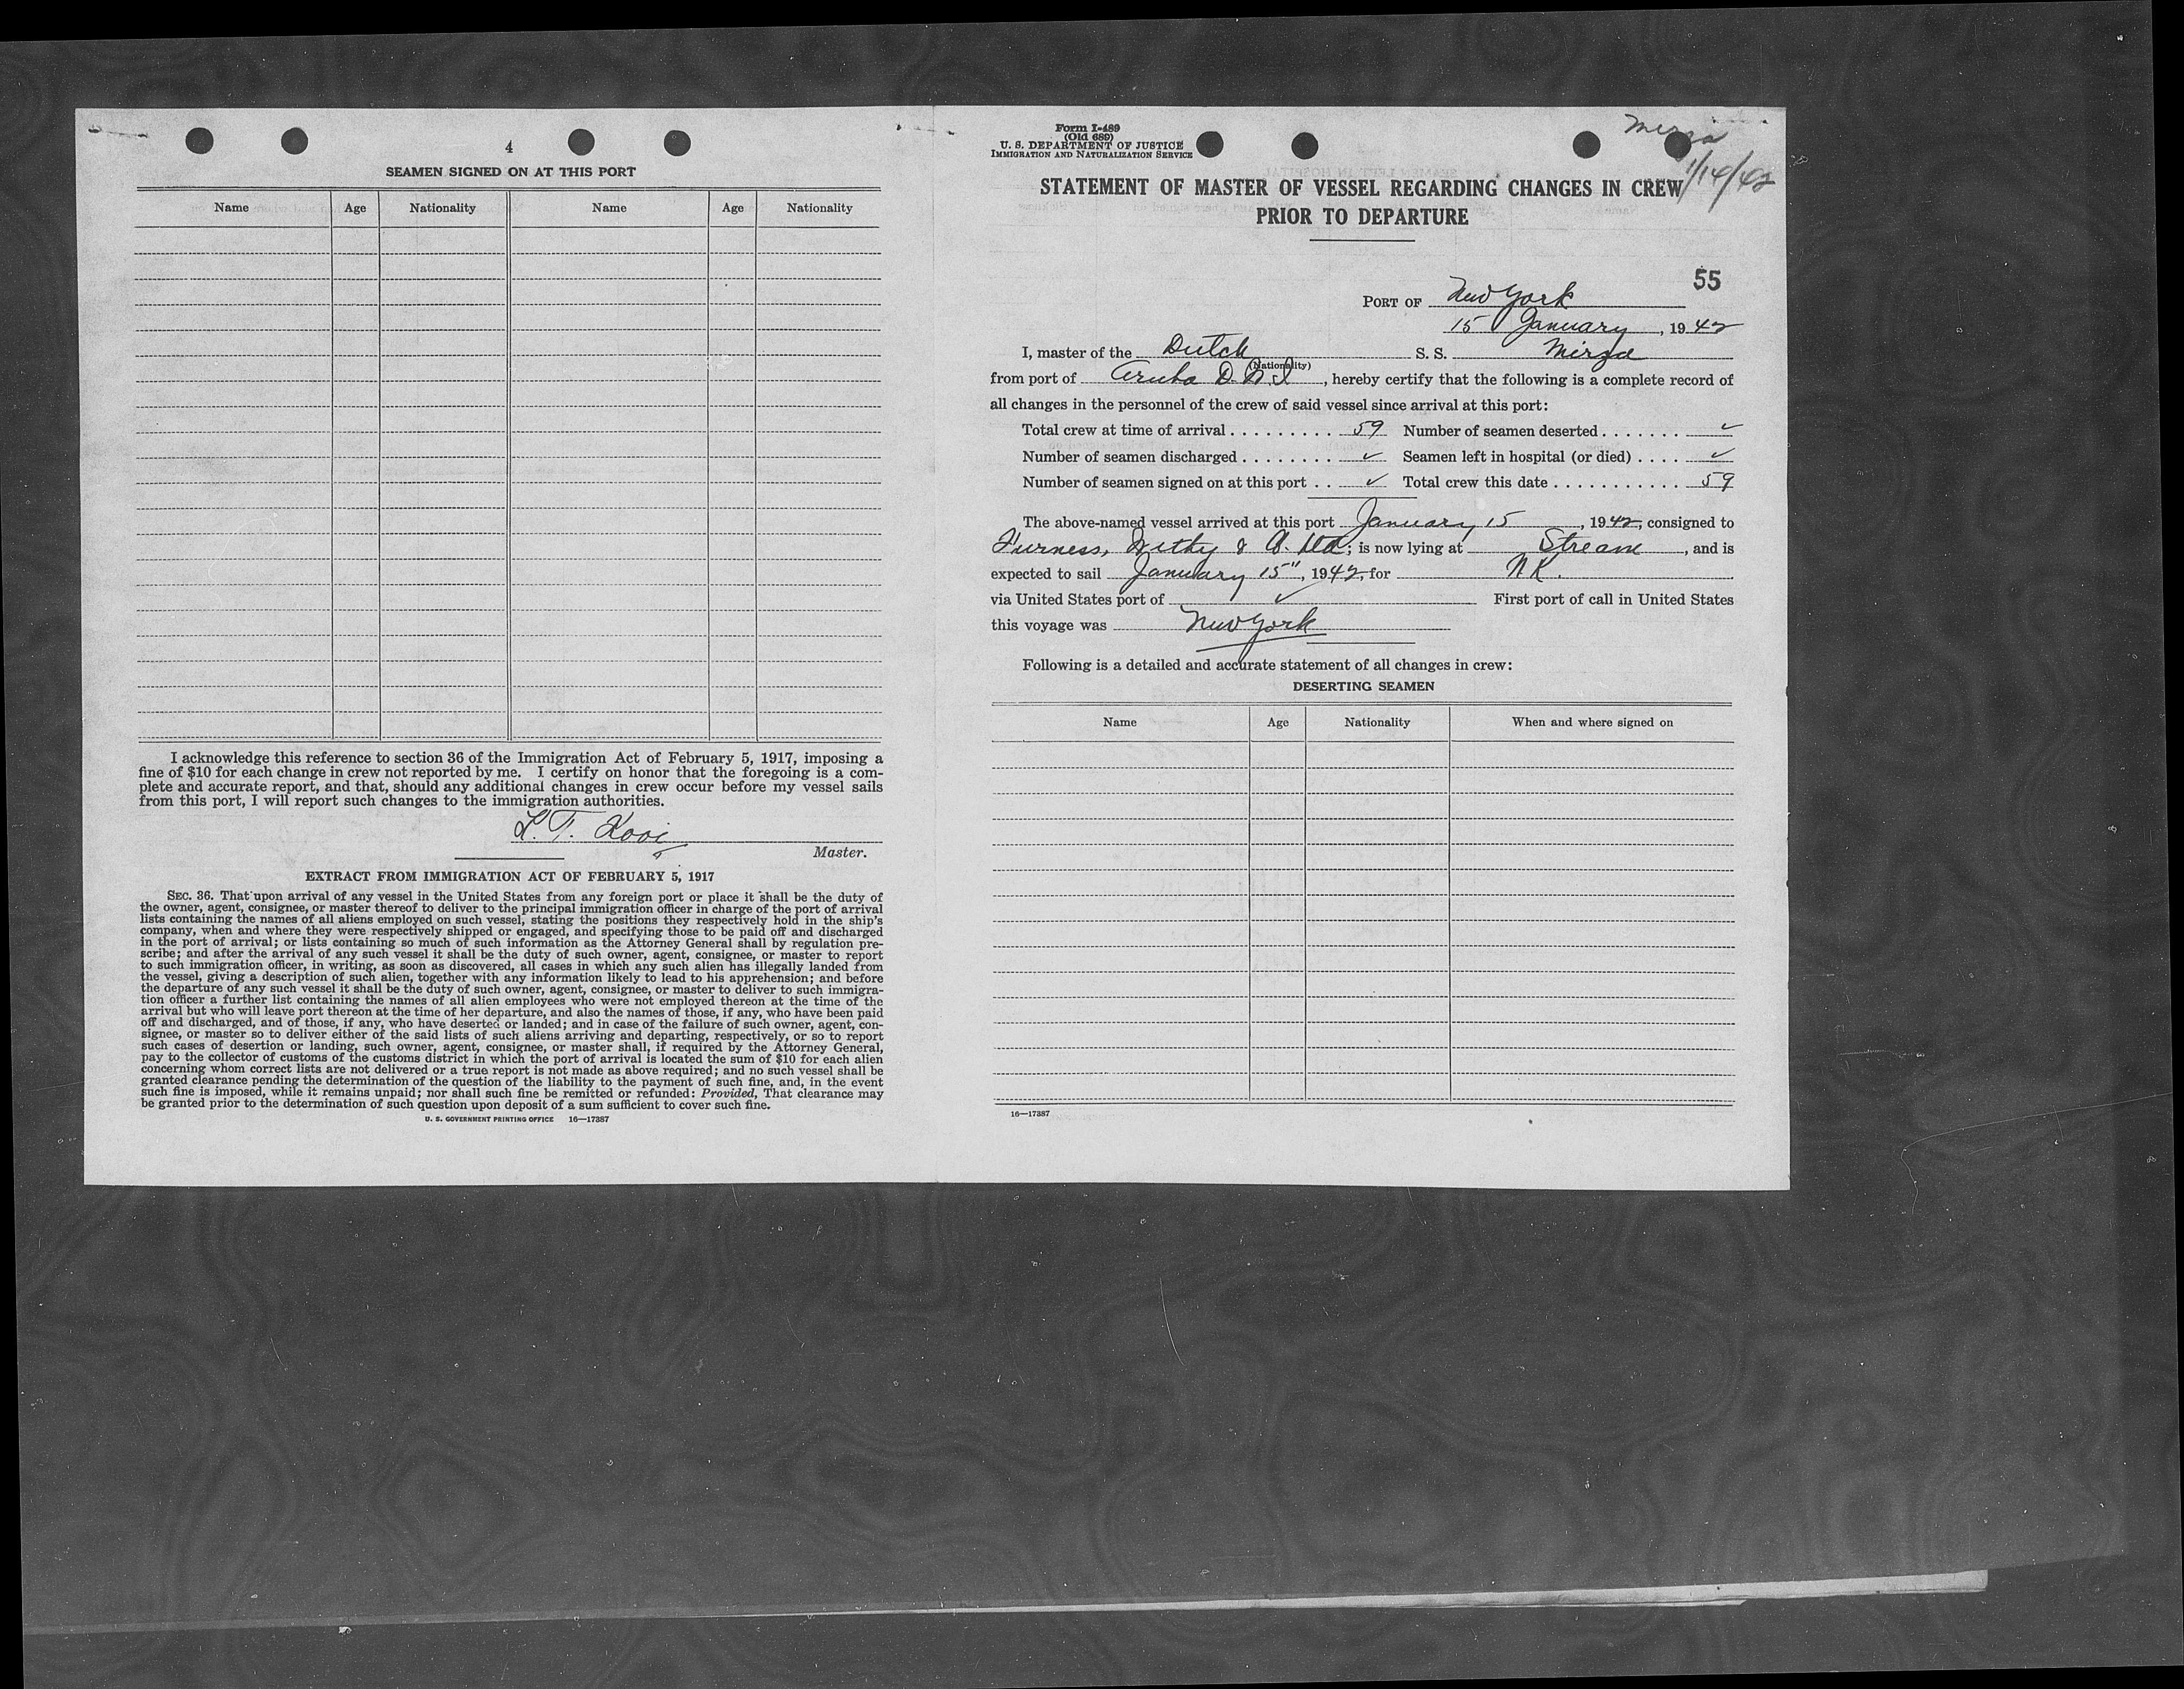 4
SEAMEN SIGNED ON AT THIS PORT
Name Age Nationality Name Age Nationality
I acknowledge this reference to section 36 of the Immigration Act of February 5, 1917, imposing a
fine of $10 for each change in crew not reported by me. I certify on honor that the foregoing is a com-
plete and accurate report, and that, should any additional changes in crew occur before my vessel sails
from this port, I will report such changes to the immigration authorities.
L. T. Kooi
Master.
EXTRACT FROM IMMIGRATION ACT OF FEBRUARY 5, 1917
SEC. 36. That upon arrival of any vessel in the United States from any foreign port or place it shall be the duty of
the owner, agent, consignee, or master thereof to deliver to the principal immigration officer in charge of the port of arrival
lists containing the names of all aliens employed on such vessel, stating the positions they respectively hold in the ship's
company, when and where they were respectively shipped or engaged, and specifying those to be paid off and discharged
in the port of arrival; or lists containing so much of such information as the Attorney General shall by regulation pre-
scribe; and after the arrival of any such vessel it shall be the duty of such owner, agent, consignee, or master to report
to such immigration officer, in writing, as soon as discovered, all cases in which any such alien has illegally landed from
the vessel, giving a description of such alien, together with any information likely to lead to his apprehension; and before
the departure of any such vessel it shall be the duty of such owner, agent, consignee, or master to deliver to such immigra-
tion officer a further list containing the names of all alien employees who were not employed thereon at the time of the
arrival but who will leave port thereon at the time of her departure, and also the names of those, if any, who have been paid
off and discharged, and of those, if any, who have deserted or landed; and in case of the failure of such owner, agent, con-
signee, or master so to deliver either of the said lists of such aliens arriving and departing, respectively, or so to report
such cases of desertion or landing, such owner, agent, consignee, or master shall, if required by the Attorney General,
pay to the collector of customs of the customs district in which the port of arrival is located the sum of $10 for each alien
concerning whom correct lists are not delivered or a true report is not made as above required; and no such vessel shall be
granted clearance pending the determination of the question of the liability to the payment of such fine, and, in the event
such fine is imposed, while it remains unpaid; nor shall such fine be remitted or refunded: Provided, That clearance may
be granted prior to the determination of such question upon deposit of a sum sufficient to cover such fine.
U. S. GOVERNMENT PRINTING OFFICE 16—17387
Form I-489
(Old 689)
U. S. DEPARTMENT OF JUSTICE
IMMIGRATION AND NATURALIZATION SERVICE
Mirza
1/14/42
STATEMENT OF MASTER OF VESSEL REGARDING CHANGES IN CREW
PRIOR TO DEPARTURE
55
PORT OF New York
15 January, 1942
I, master of the Dutch S. S. Mirza
(Nationality)
from port of Aruba D. W. I, hereby certify that the following is a complete record of
all changes in the personnel of the crew of said vessel since arrival at this port:
Total crew at time of arrival . . . . . . . . . . 59 Number of seamen deserted . . . . . . . ✓
Number of seamen discharged . . . . . . . . ✓ Seamen left in hospital (or died) . . . . ✓
Number of seamen signed on at this port . . ✓ Total crew this date . . . . . . . . . . . . 59
The above-named vessel arrived at this port January 15, 1942, consigned to
Furness, Withy & Co. Ltd; is now lying at Stream, and is
expected to sail January 15", 1942, for N K.
via United States port of ✓ First port of call in United States
this voyage was New York
Following is a detailed and accurate statement of all changes in crew:
DESERTING SEAMEN
Name Age Nationality When and where signed on
16—17387